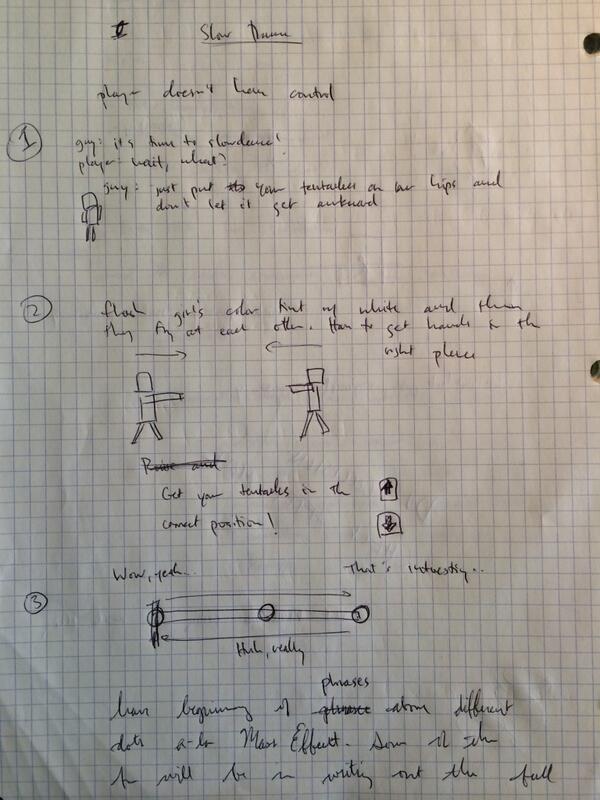 Slow Dance
player doesn't have control
1
guy: it's time to slowdance!
player: wait, what?
guy: just put your tentacles on her hips and
don't let it get awkward
2
flash girl's color tint w/ white and then
they fly at each other. Have to get hands in the
right places
Get your tentacles in the
correct position!
Wow, yeah..
That's interesting..
3
Huh, really
phrases
have beginning of phrase above different
dots a-la Mass Effect. Some of the
will be in writing out the full